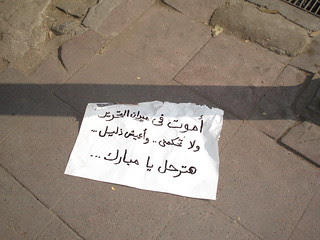 أموت في ميدان التحرير
ولا تحكمنى .. وأعيش ذليل ...
هترحل يا مبارك ...